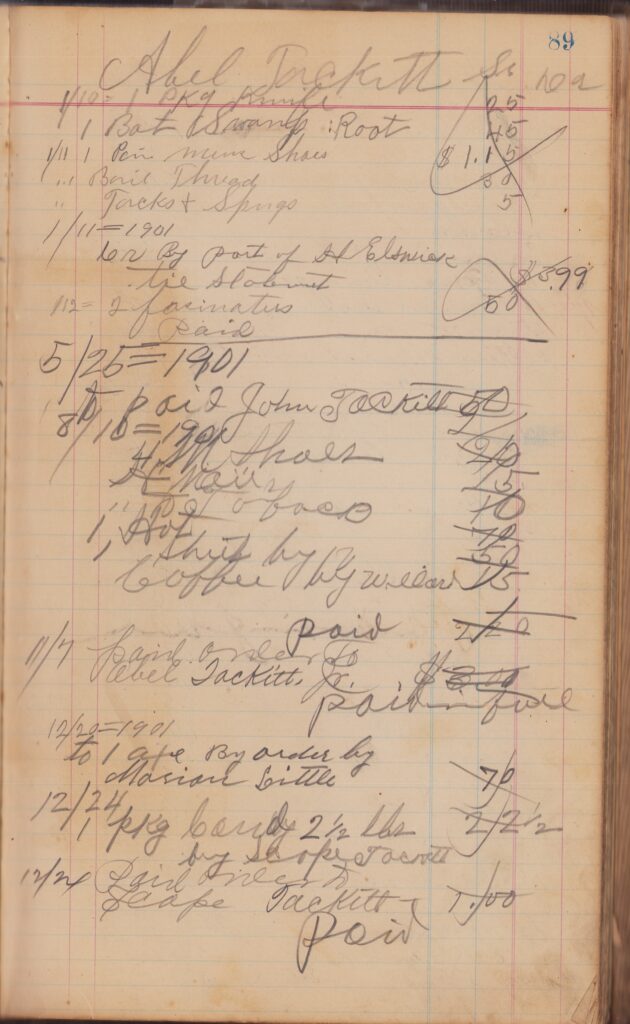 89
Abel Tackitt Sr
1/10 = 1 PKg Knife 25
1 Bot Swamp Root 45
1/11 1 Pair mens Shoes $1.15
" Thread 30
" Tacks & Sprigs 5
1/11 = 1901
By part of H Elswick
tie Statemt $3.99
1/12 = 2 facinators 50
Paid
5/25 = 1901
to paid John Tackitt 50
8/10 = 1901
Shoes
Nails 25
" Tobaco 10
1 Hat 70
1 Shirt by 50
Coffee by 15
paid 2 20
11/7 paid order to
Abel Tackitt, Jr.
paid in full
12/20 = 1901
to 1 axe By order by
Marion Little 70
12/24
1 pkg Candy 2 1/2 lbs 22 1/2
by Scope Tackitt
12/24 Paid order to
Scape Tackitt 1.00
Paid